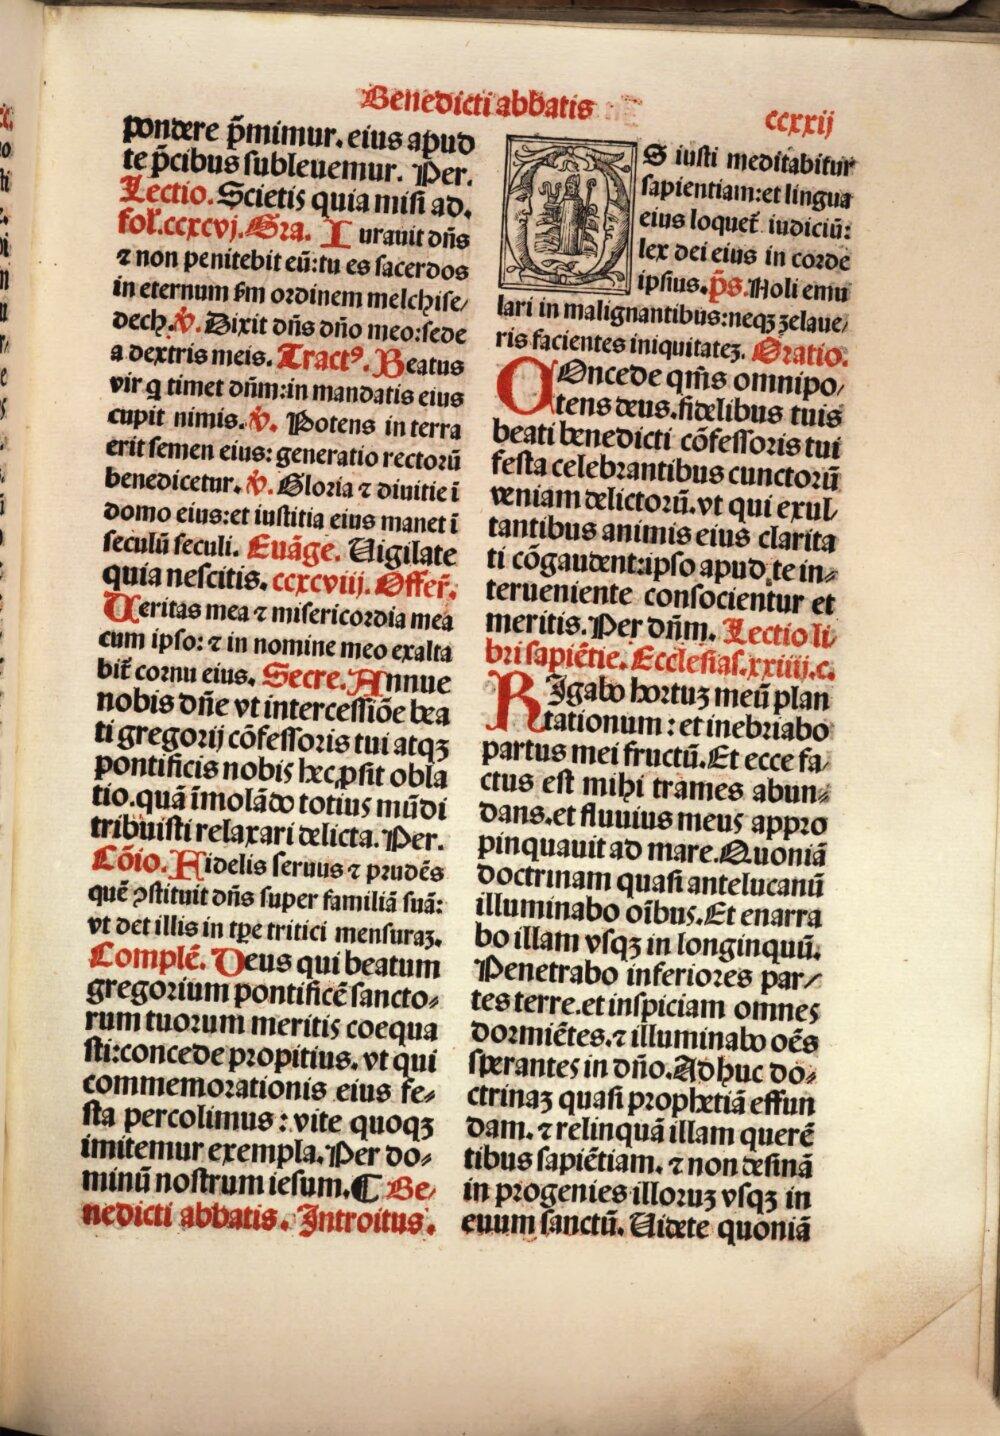 Benedicti abbatis
ccxxij
pondere p̃mimur. eius apud
te p̃cibus subleuemur. Per.
Lectio. Scietis quia misi ad.
fol.ccxcvj. Gra. Iurauit dñs
⁊ non penitebit eũ: tu es sacerdos
in eternum ẜm ordinem melchise/
dech. v̇. Dixit dñs dño meo: sede
a dextris meis. Tractꝰ. Beatus
vir q̃ timet dñm: in mandatis eius
cupit nimis. v̇. Potens in terra
erit semen eius: generatio rectorũ
benedicetur. v̇. Gloria ⁊ diuitie ĩ
domo eius: et iustitia eius manet ĩ
seculũ seculi. Euãge. Uigilate
quia nescitis. ccxcviij. Offer̃.
Ueritas mea ⁊ misericordia mea
cum ipso: ⁊ in nomine meo exalta
bit̃ cornu eius. Secre. Annue
nobis dñe vt intercessiõe bea
ti gregorij cõfessoris tui atqꝫ
pontificis nobis hec ꝓsit obla
tio. quã ĩmolãdo totius mũdi
tribuisti relaxari delicta. Per.
Cõio. Fidelis seruus ⁊ prudẽs
quẽ ꝯstituit dñs super familiã suã:
vt det illis in tꝑe tritici mensuraꝫ.
Complẽ. Deus qui beatum
gregorium pontificẽ sancto-
rum tuorum meritis coequa
sti: concede propitius. vt qui
commemorationis eius fe-
sta percolimus: vite quoqꝫ
imitemur exempla. Per do-
minũ nostrum iesum. ¶ Be/
nedicti abbatis. Introitus.
OS iusti meditabitur
sapientiam: et lingua
eius loquet̃ iudiciũ:
lex dei eius in corde
ipsius. p̃s. Noli emu
lari in malignantibus: neqꝫ zelaue/
ris facientes iniquitateꝫ. Oratio.
COncede q̃ms omnipo/
tens deus. fidelibus tuis
beati benedicti cõfessoris tui
festa celebrantibus cunctorũ
veniam delictorũ. vt qui exul/
tantibus animis eius clarita
ti cõgaudent: ipso apud te in-
terueniente consocientur et
meritis. Per dñm. Lectio li/
bri sapiẽtie. Ecclesias. xxiiij. c.
RIgabo hortuꝫ meũ plan
tationum: et inebriabo
partus mei fructũ. Et ecce fa/
ctus est mihi trames abun-
dans. et fluuius meus appro
pinquauit ad mare. Quoniã
doctrinam quasi antelucanũ
illuminabo oĩbus. Et enarra
bo illam vsqꝫ in longinquũ.
Penetrabo inferiores par/
tes terre. et inspiciam omnes
dormiẽtes. ⁊ illuminabo oẽs
sperantes in dño. Adhuc do-
ctrinaꝫ quasi prophetiã effun
dam. ⁊ relinquã illam querẽ
tibus sapiẽtiam. ⁊ non desinã
in progenies illoruꝫ vsqꝫ in
euum sanctũ. Uidete quoniã